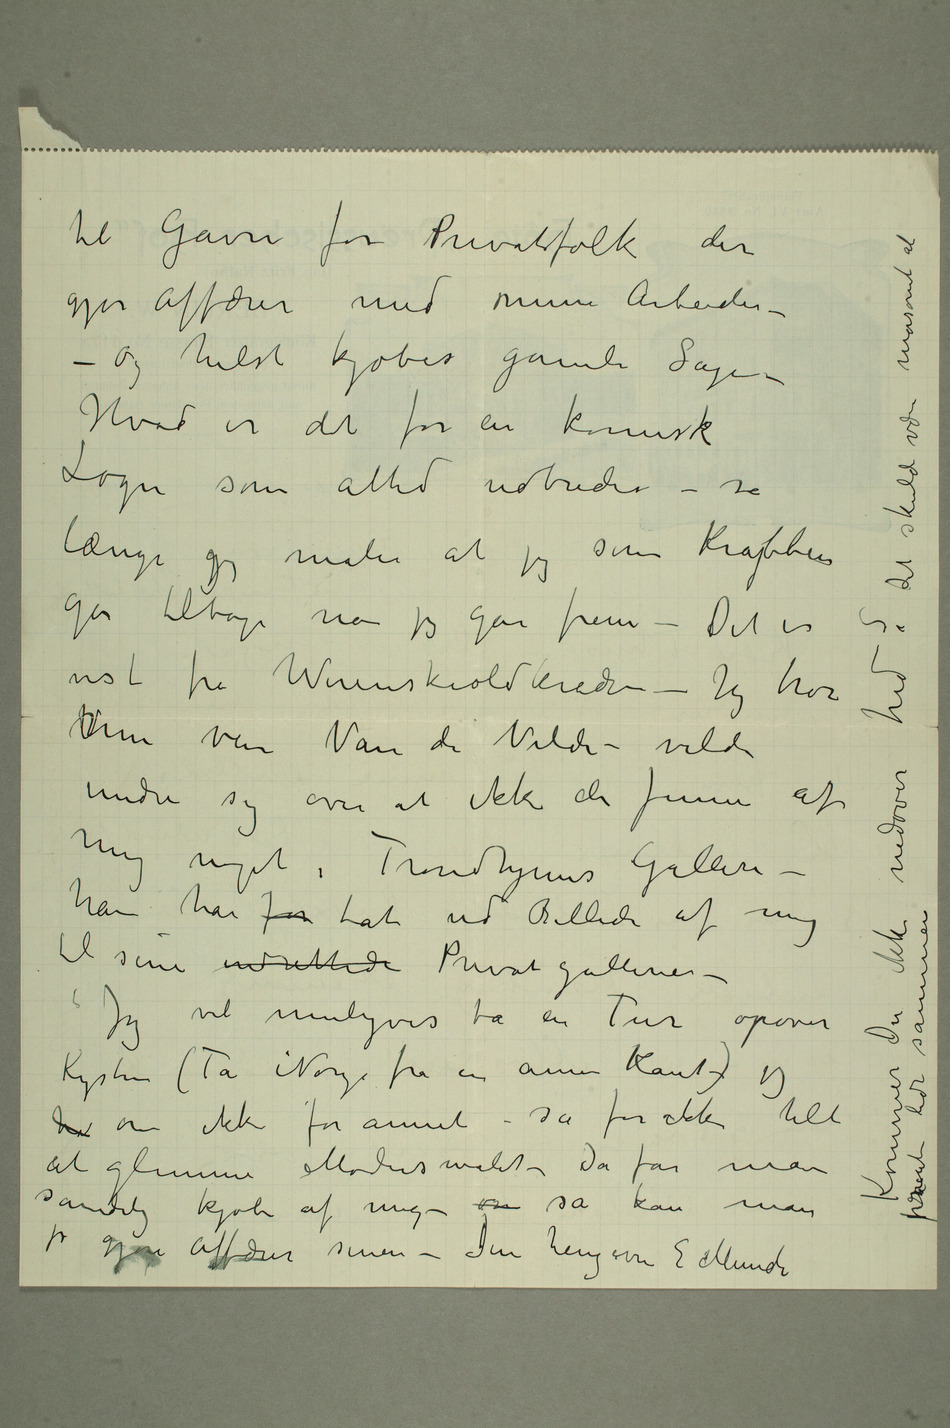 til Gavn for Privatfolk der
gjør affærer med mine Arbeider –
– og helst kjøbes gamle Sager –
Hvad er det for en komisk
Løgn som altid udbredes – så
længe jeg maler at jeg som Krabben
går tilbage når jeg går frem – Det er
vist fra Werenskioldkredsen – Jeg tror
min ven Van de Velde – vilde
undre sig over at ikke de finner af
mig noget i Trondhjems Galleri –
han har for tat ud Billeder af mig
til sine indrettede Privatgallerier –
Jeg vil muligvis ta en Tur opover
Kysten (Ta i Norge fra en annen Kant) jeg
om ikke for annet – så for ikke helt
at glemme Modersmålet – Da får man
sandelig kjøbe af mig – om så kan man
jo gjøre affærer senere – Din hengivne E Munch
Kommer Du ikke nedover hid? Så det skulde være morsomt at
prate her sammen